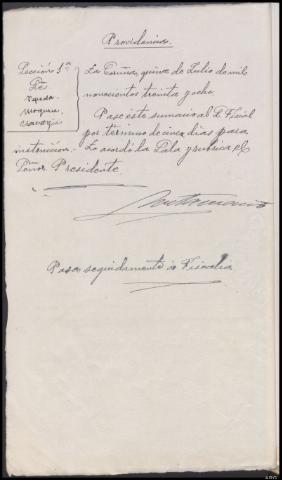 Providencia.
Sección 1ª
La Coruña, quince de Julio de mil
Sres
novecientos treinta y ocho.
Pase este sumario al S. Fiscal
por término de cinco días para
instrucción.- Lo acordó la Sala y rubrica el
Señor Presidente
Pasa seguidamente a Fiscalía